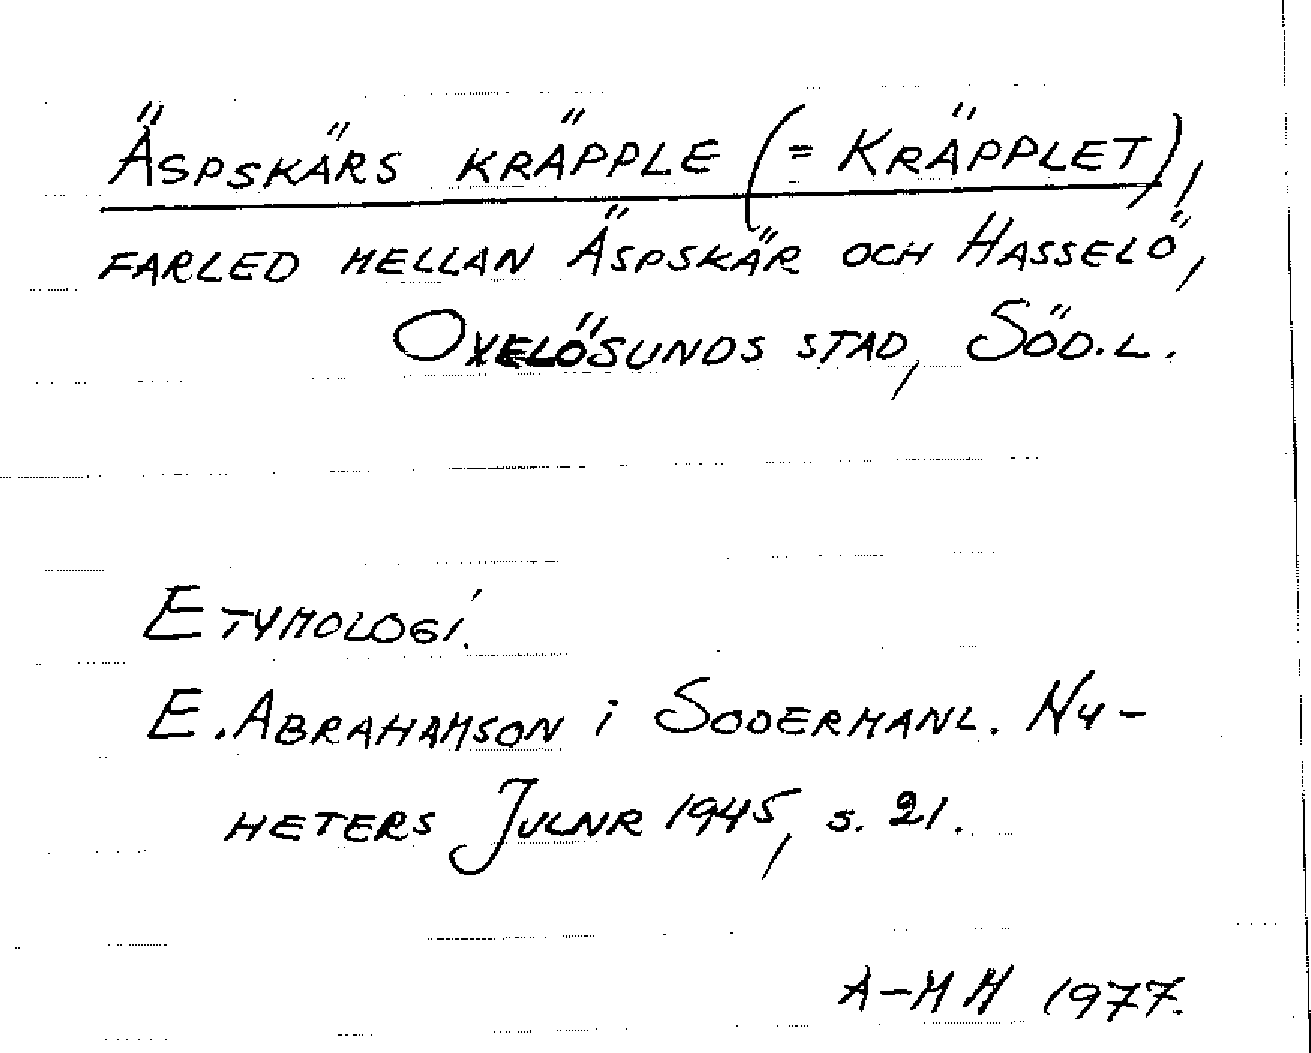 ÄSPSKÄRS KRÄPPLE (= KRÄPPLET),
FARLED MELLAN ÄSPSKÄR OCH HASSELÖ,
OXELÖSUNDS STAD, SÖD.L.
ETYMOLOGI.
E. ABRAHAMSON i SODERMANL. NY-
HETERS JULNR 1945, S. 21.
A-MH 1977.